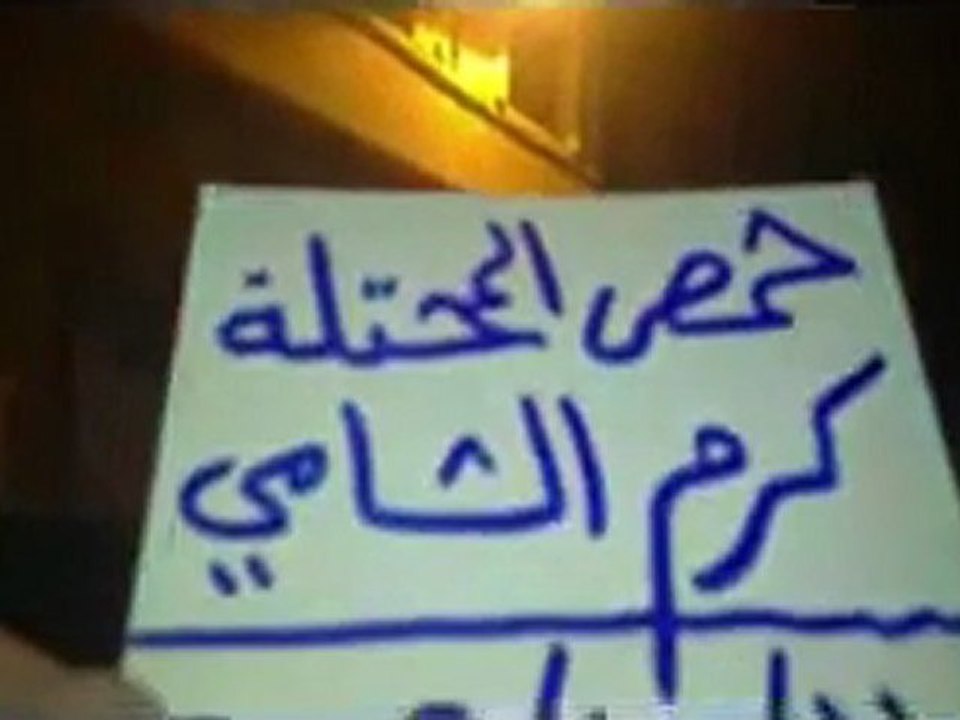 حمص المحتلة
كرم الشامي